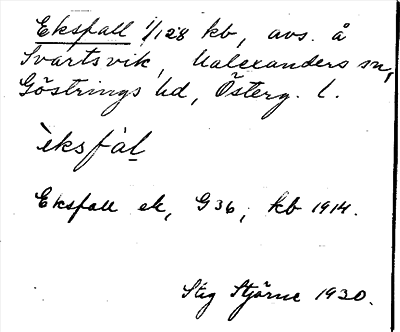 Eksfall 1/128 kb, avs. å
Svartsvik, Ualexanders sn,
Göstrings hd, Österg. l.
èksfàl
Eksfall ek, G36, kb 1914.
Stig Stjärne 1930.